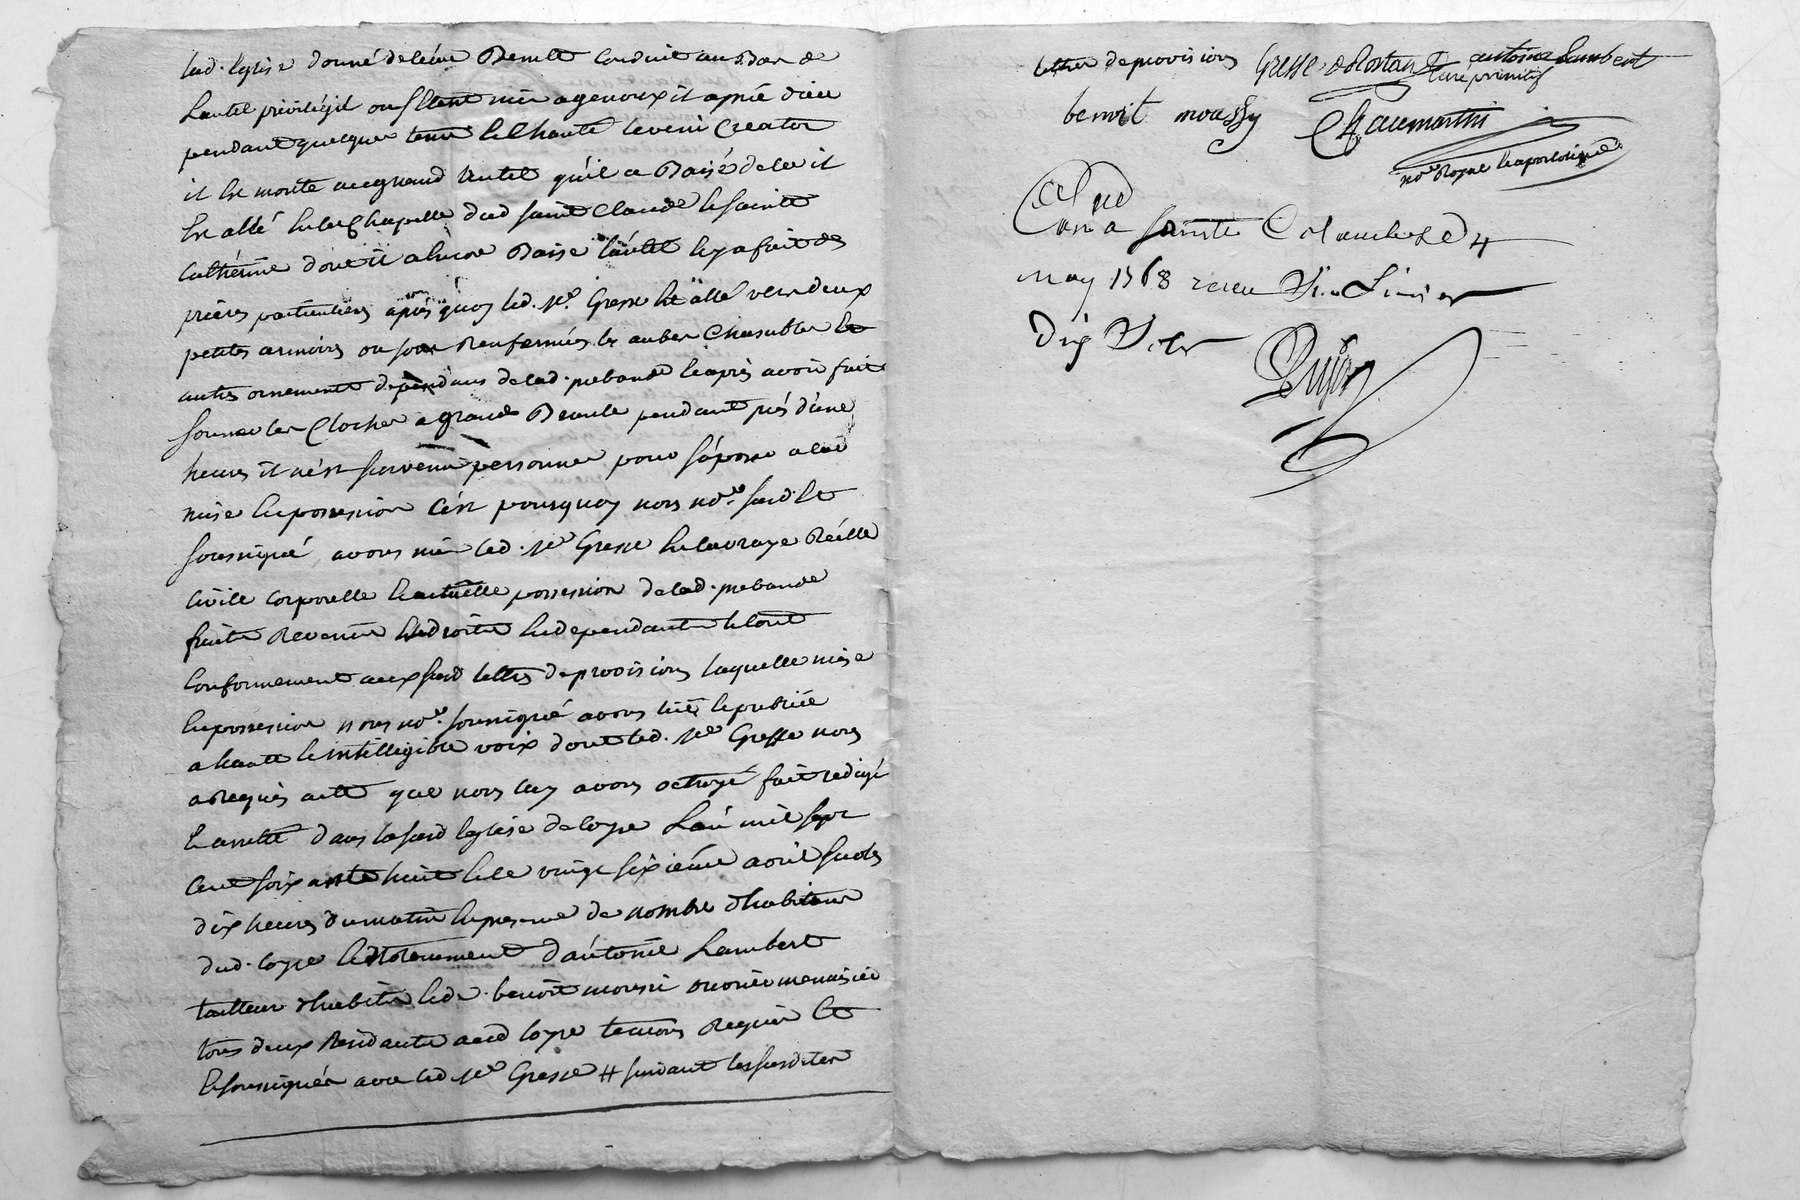 lad. Eglise donné de l'eau Benitte conduit au Bas de
Lautel privilégié ou s'étant mis a genoux il a prié dieu
pendant quelque tems et Chanté le veni Creator
il est monté au grand Autel qu'il a Baisé de la il
Est allé En la Chapelle dud saint Claude et Sainte
Catherine dont il a Encore Baisé l'autel et y a fait des
prières particulieres après quoy led. Sr Gresse est allé vers deux
petites armoires ou sont Renfermés les aubes Chasubles Et
autres ornements dépendans de lad. prebande et après avoir fait
sonner les Cloches a grand Branle pendant près d'une
heure il n'est survenu personne pour s'oposer a lad
mise En possession C'est pourquoy nous nore susd. Et
soussigné, avons mis led. Sr Gresse En la vraye Réélle
Civile Corporelle Et actuelle possession de lad. prebande
fruits Revenus Et droits En dépendants le tout
Conformement aux susd lettres de provisions laquelle mise
En possession nous nore. soussigné avons lüe Et publiée
a haute Et intelligible voix dont led. Sr Gresse nous
a Requis acte que nous luy avons octroyé fait redigé
Et arreté dans la susd Eglise de loyse L'an mil sept
Cent soixante huit Et le vingt sixieme avril sur les
dix heures du matin En presence de nombre d'habitans
dud. loyse Et notamment d'antoine Lambert
tailleur d'habits Et de benoit moussi ouvrier menuisier
tous deux Residants aud loyse temoins Requis Et
Et soussignés avec led. Sr Gresse # suivant les susdites
lettres de provisions Gresse antoine Lambert
curé primitif
benoit moussy Chaumartin
nore Royal Et apostolique
Clé a Sainte Colombe le 4
may 1768 reçu
dix sols